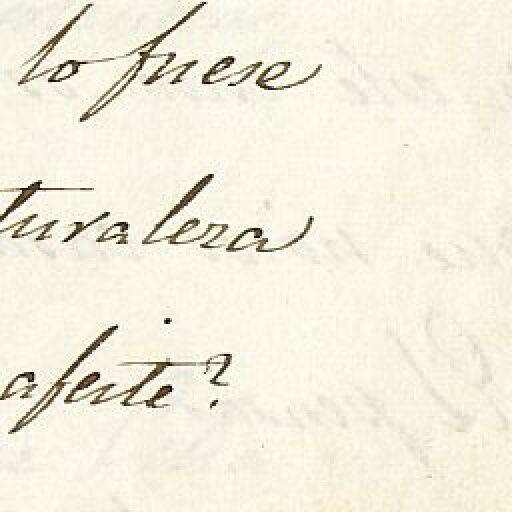 lo fuese
turaleza
afeite?